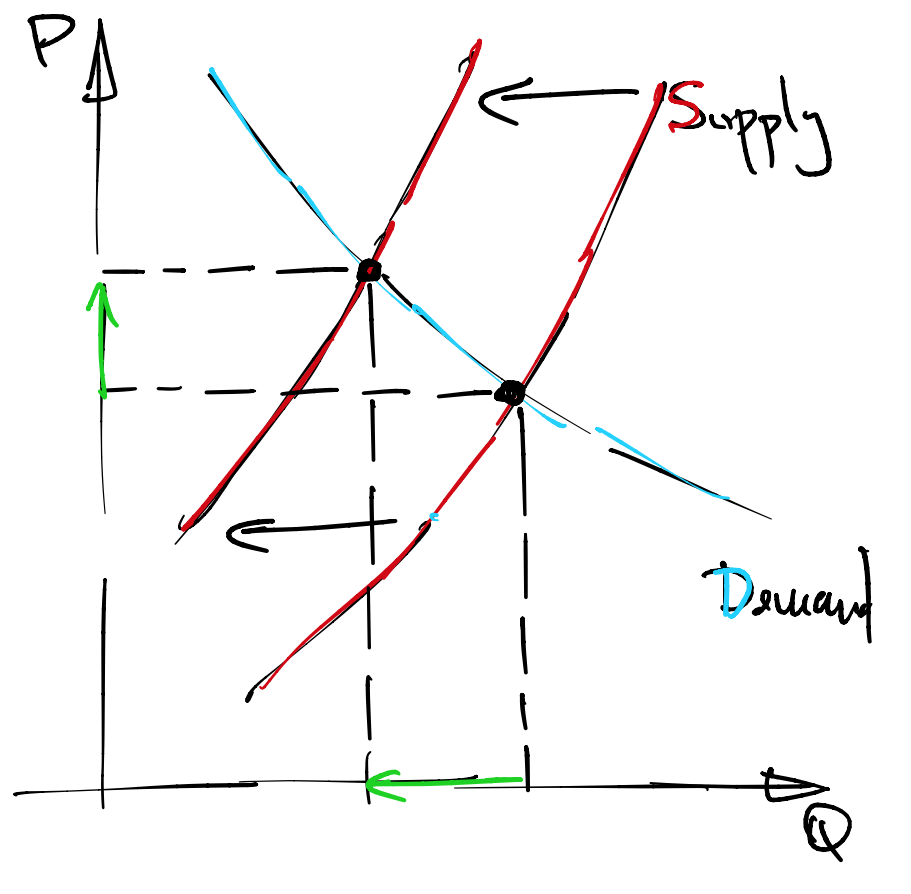 P
Supply
Demand
Q